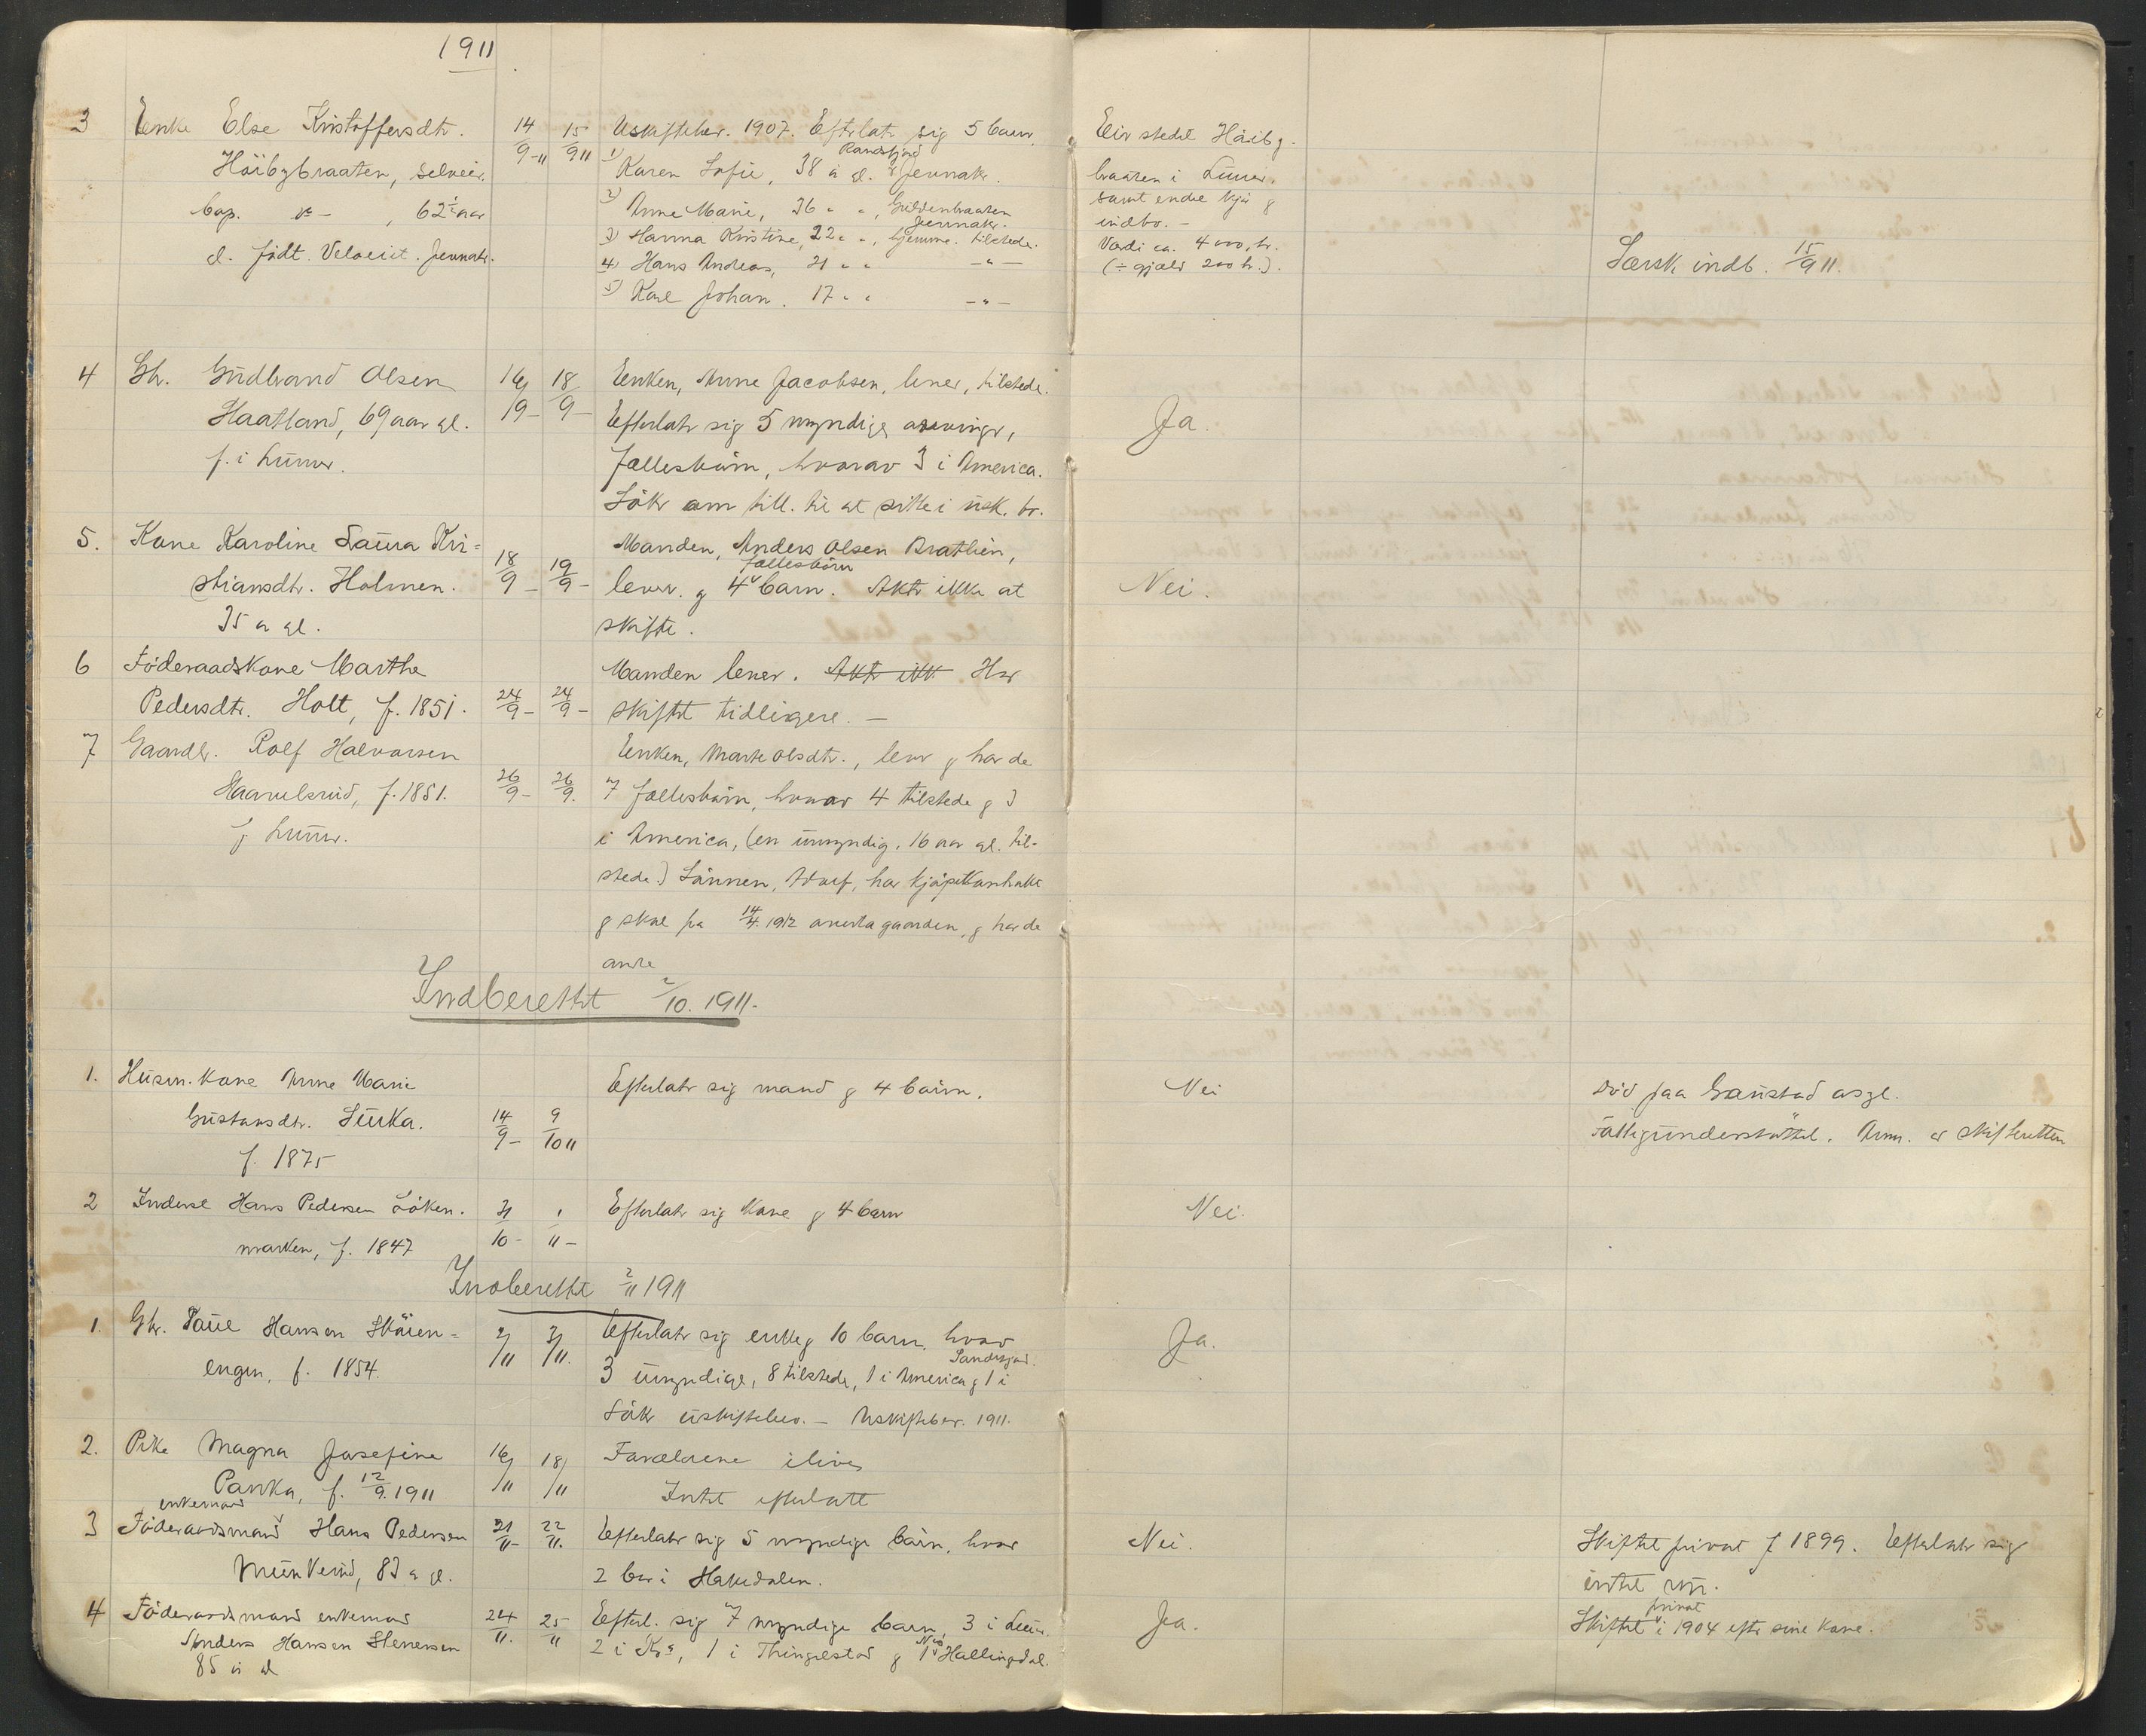 1911
3 Enke Else Kristoffersdtr. 14/9-11 15/9 11 Uskiftebev. 1907. Efterlatr sig 5 barn.
Höibybraaten, selveier. 1) Karen Sofie, 38 a gl. Randsfjord Jevnakr.
62½ aar 2) Anne Marie, 36 " ", Guldenbraaten Jevnakr.
3) Hanna Kristine, 22 " ", hjemme. tilstede.
gl. födt Jevnakr. 4) Hans Andreas, 21 " " -"-
5) Karl Johan. 17 " " -"-
Eier stedet Höiby-
braaten i Lunner,
samt endel kjør &
indbo. -
Værdi ca. 4000, kr.
(÷ gjæld 200 kr.).
Særsk. indb. 15/9 11.
4 Gbr. Gudbrand Olsen 16/9- 18/9- Enken, Anne Jacobsen, lever, tilstede.
Haatland, 69 aar gl. Efterlatr sig 5 myndige arvinger, Ja.
f. i Lunner. fællesbörn, hvorav 3 i America.
Sökr om till. til at sitte i usk. bo.
5. Kone Karoline Laura Kri= 18/9- 19/9- Manden, Anders Olsen Brathen,
stiansdtr. Holmen. lever. & 4 fællesbörn barn. Aktr ikke at Nei.
35 a gl. skifte.
6 Föderaadskone Marthe Manden lever. Aktr ikk. Har
Pedersdtr. Holt, f. 1851. 24/9- 24/9- skiftet tidligere. -
7 Gaardbr. Rolf Halvorsen Enken, Marte Olsdtr., lever & har de
Haavelsrud, f. 1851. 26/9- 26/9. 7 fællesbörn, hvorav 4 tilstede & 3
f Lunner. i America, (en umyndig, 16 aar gl. til-
stede.) Sönnen, har kjöpekontrakt
& skal fra 14/4. 1912 overta gaarden, & har de
andre
Indberettet 2/10. 1911.
1. Husm. kone Anne Marie Efterlatr sig mand & 4 börn. Nei Död paa Gaustad asyl.
Gustavsdtr. Stuka. 14/9- 9/10 11 Fattigunderstöttet. Anm. av skifteretten
f. 1875
2 Inderst Hans Pedersen Löken- 31/10- 1/11- Efterlatr sig kone & 4 barn Nei.
marken, f. 1847
Indberettet 2/11 1911
1. Gbr. Paul Hansen Skören= 2/11 3/11. Efterlatr sig enke & 10 barn, hvor Ja.
engen, f. 1854. 3 umyndige, 8 tilstede, 1 i America & 1 i Sandefjord.
Sökr uskiftebev. - Uskiftebev. 1911.
2. Pike Magna Josefine 16/11 18/11 Forældrene ilive
Panka, f. 12/9. 1911 Intet efterlatt
3 Föderaadsmand enkemand Hans Pedersen 21/11- 22/11. Efterlatr sig 5 myndige börn, hvor Nei. Skiftet privat f 1899. Efterlatr sig
83 a gl. 2 bor i Hakedalen. intet
4 Föderaadsmand enkemand 24/11. 25/11 Efterl. sig 7 myndige barn, 3 i Lun. Ja. Skiftet privat i 1904 efter sine kone.
Anders Hansen Stenersen 2 i Kra, 1 i Thingelstad & 1 Nes Hallingdal.
85 a gl